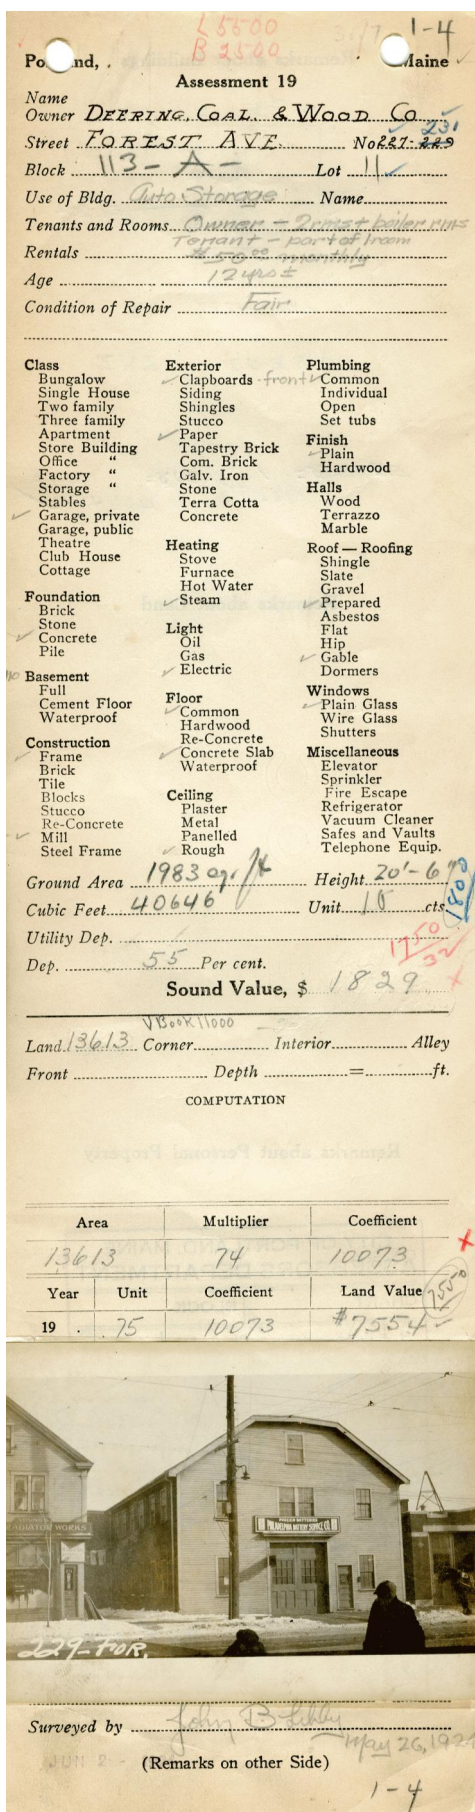 L 5500
B 2500
1-4
Po nd, . Maine
Assessment 19
Name
Owner DEERING, COAL, & WOOD CO
231
Street FOREST AVE. No 227-229
Block 113-A- Lot 11
Use of Bldg. Auto Storage Name
Tenants and Rooms Owner - 2 rms + boiler rms
Tenant - part of 1 room
Rentals $50.00 monthly
Age 12 yrs ±
Condition of Repair Fair
Class
Bungalow
Single House
Two family
Three family
Apartment
Store Building
Office "
Factory "
Storage "
Stables
Garage, private
Garage, public
Theatre
Club House
Cottage
Foundation
Brick
Stone
Concrete
Pile
no
Basement
Full
Cement Floor
Waterproof
Construction
Frame
Brick
Tile
Blocks
Stucco
Re-Concrete
Mill
Steel Frame
Exterior
Clapboards - front
Siding
Shingles
Stucco
Paper
Tapestry Brick
Com. Brick
Galv. Iron
Stone
Terra Cotta
Concrete
Heating
Stove
Furnace
Hot Water
Steam
Light
Oil
Gas
Electric
Floor
Common
Hardwood
Re-Concrete
Concrete Slab
Waterproof
Ceiling
Plaster
Metal
Panelled
Rough
Plumbing
Common
Individual
Open
Set tubs
Finish
Plain
Hardwood
Halls
Wood
Terrazzo
Marble
Roof — Roofing
Shingle
Slate
Gravel
Prepared
Asbestos
Flat
Hip
Gable
Dormers
Windows
Plain Glass
Wire Glass
Shutters
Miscellaneous
Elevator
Sprinkler
Fire Escape
Refrigerator
Vacuum Cleaner
Safes and Vaults
Telephone Equip.
Ground Area 1983 sq. ft Height 20'-6"
Cubic Feet 40646 Unit 10 cts.
1800
Utility Dep.
1750
32
Dep. 55 Per cent.
Sound Value, $ 1829
V Book 11000
Land 13613 Corner Interior Alley
Front Depth = ft.
COMPUTATION
Area Multiplier Coefficient
13613 74 10073
Year Unit Coefficient Land Value
7550
19 . 75 10073 $7554
RADIATOR WORKS
PHILADELPHIA BATTERY SERVICE CO.
229-FOR.
Surveyed by John B Libby
May 26, 192
JUN 2
(Remarks on other Side)
1-4